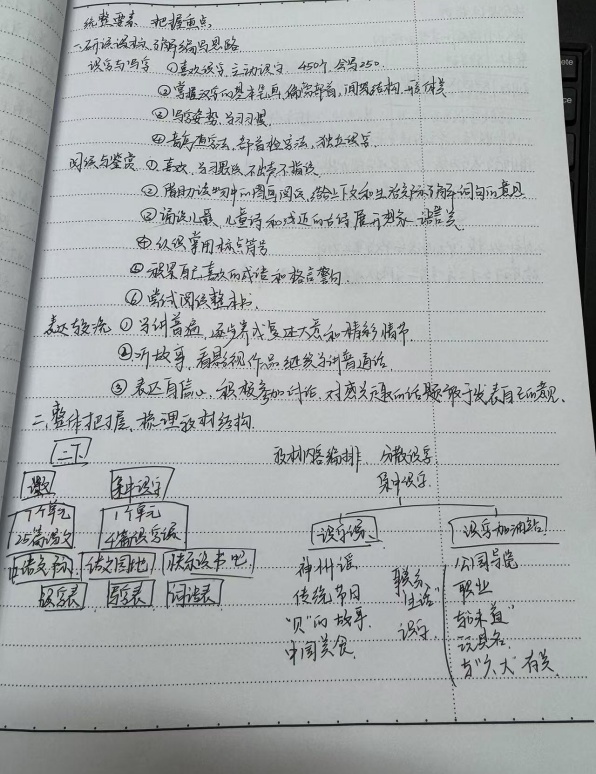 统整要素 把握重点
一、研读课标,了解编写思路
识字与写字 ①喜欢识字,主动识字 450个,会写250
②掌握汉字的基本笔画,偏旁部首,间架结构
③写字姿势,学习习惯
④音序查字法,部首检字法,独立识字
阅读与鉴赏 ①喜欢,学习默读不出声不指读
②借助读物中的图画阅读,结合上下文和生活实际了解词句的意思
③诵读儿歌、儿童诗和浅近的古诗展开想象
④认识常用标点符号
⑤积累自己喜欢的成语和格言警句.
⑥尝试阅读整本书.
表达与交流 ①学讲普通话,逐步养成 复述大意和精彩情节.
②听故事,看影视作品 继续学讲普通话
③表达自信心,积极参加讨论,对感兴趣的话题敢于发表自己的意见、
二、整体把握,梳理教材结构.
二下 教材内容编排 分散识字
集中识字
课文 集中识字
7个单元 1个单元 识字课 识字加油站
25篇课文 4篇识字课
神州谣 联系 公园导览
口语交际 语文园地 快乐读书吧 传统节日 生活 职业
识字表 写字表 词语表 "贝"的故事. 识字 "味道"
中国美食. 玩具名
与"火、大"有关.